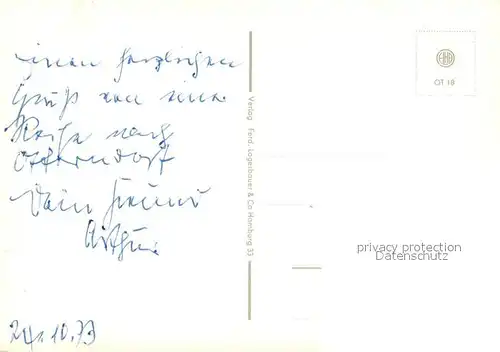 einen herzlichen
Gruß von einer
Reise nach
Otterndorf
Dein Freund
Arthur
24.10.73
Verlag Ferd. Lagerbauer & Co Hamburg 33
OT 18
privacy protection
Datenschutz